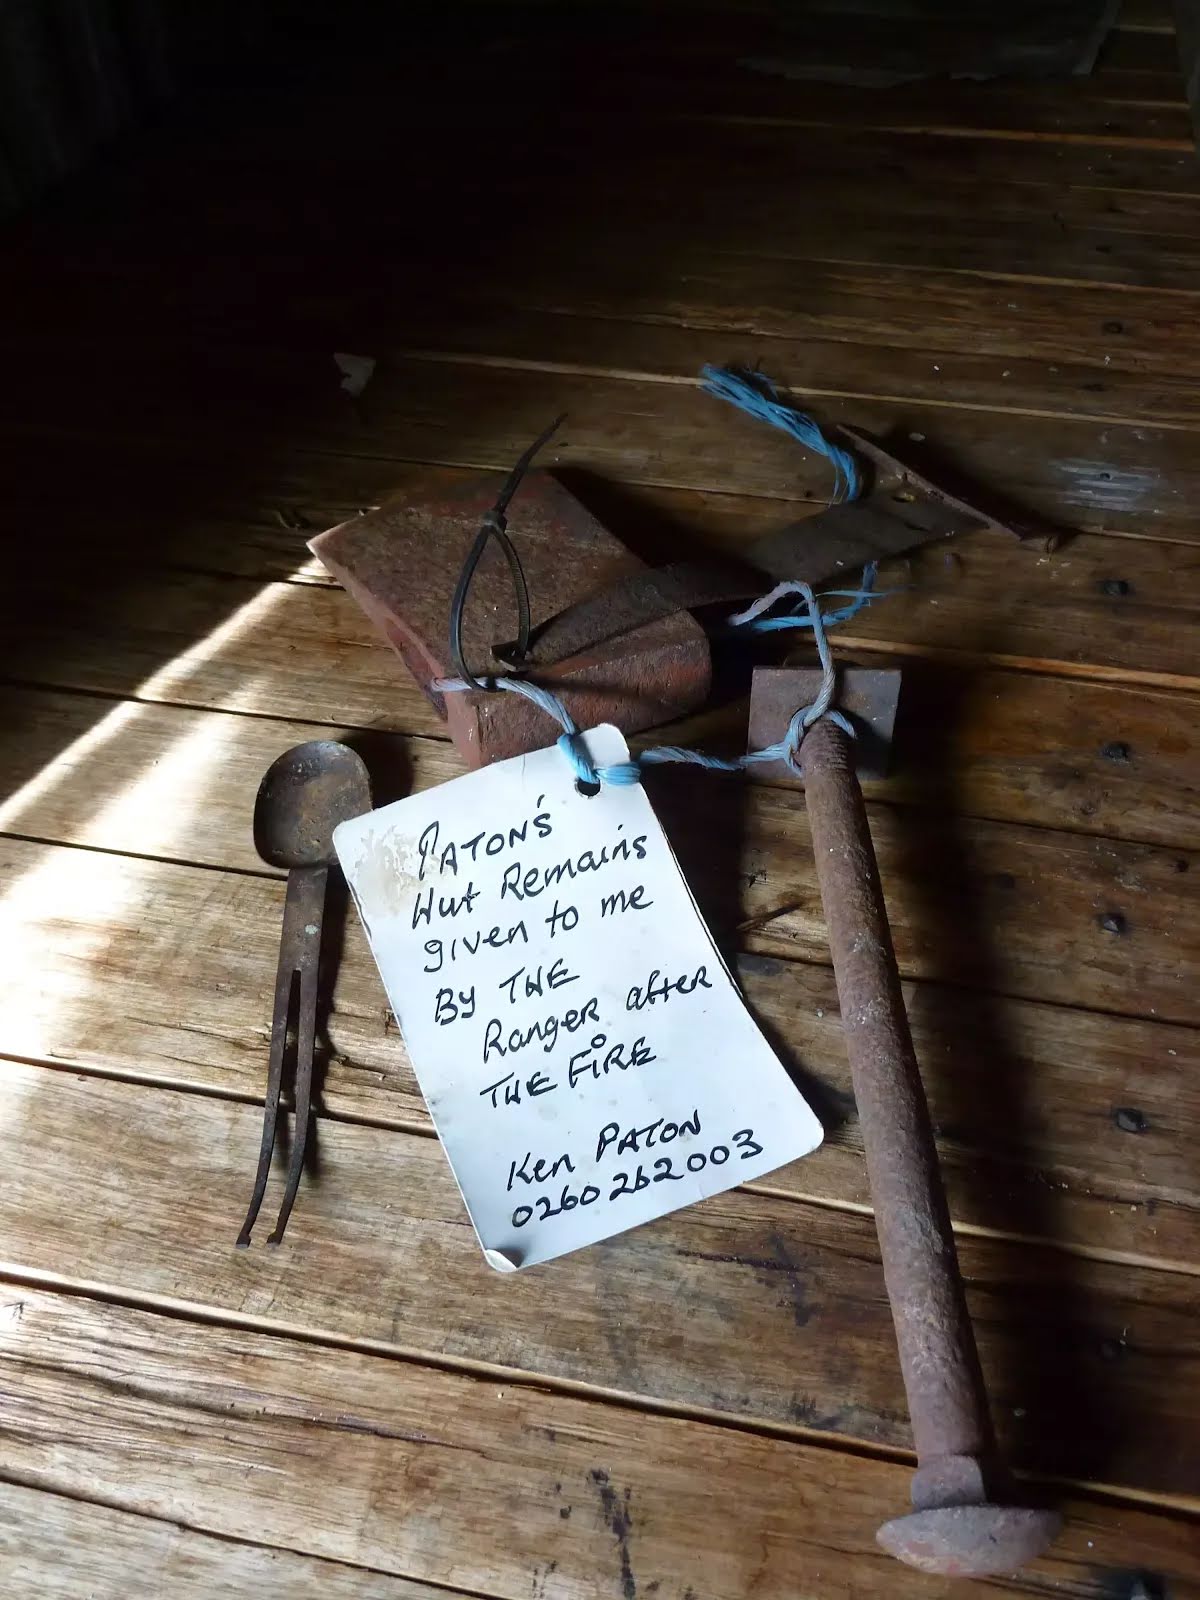 PATON'S
Hut Remains
given to me
By THE
Ranger after
THE FiRE
Ken PATON
0260 262003